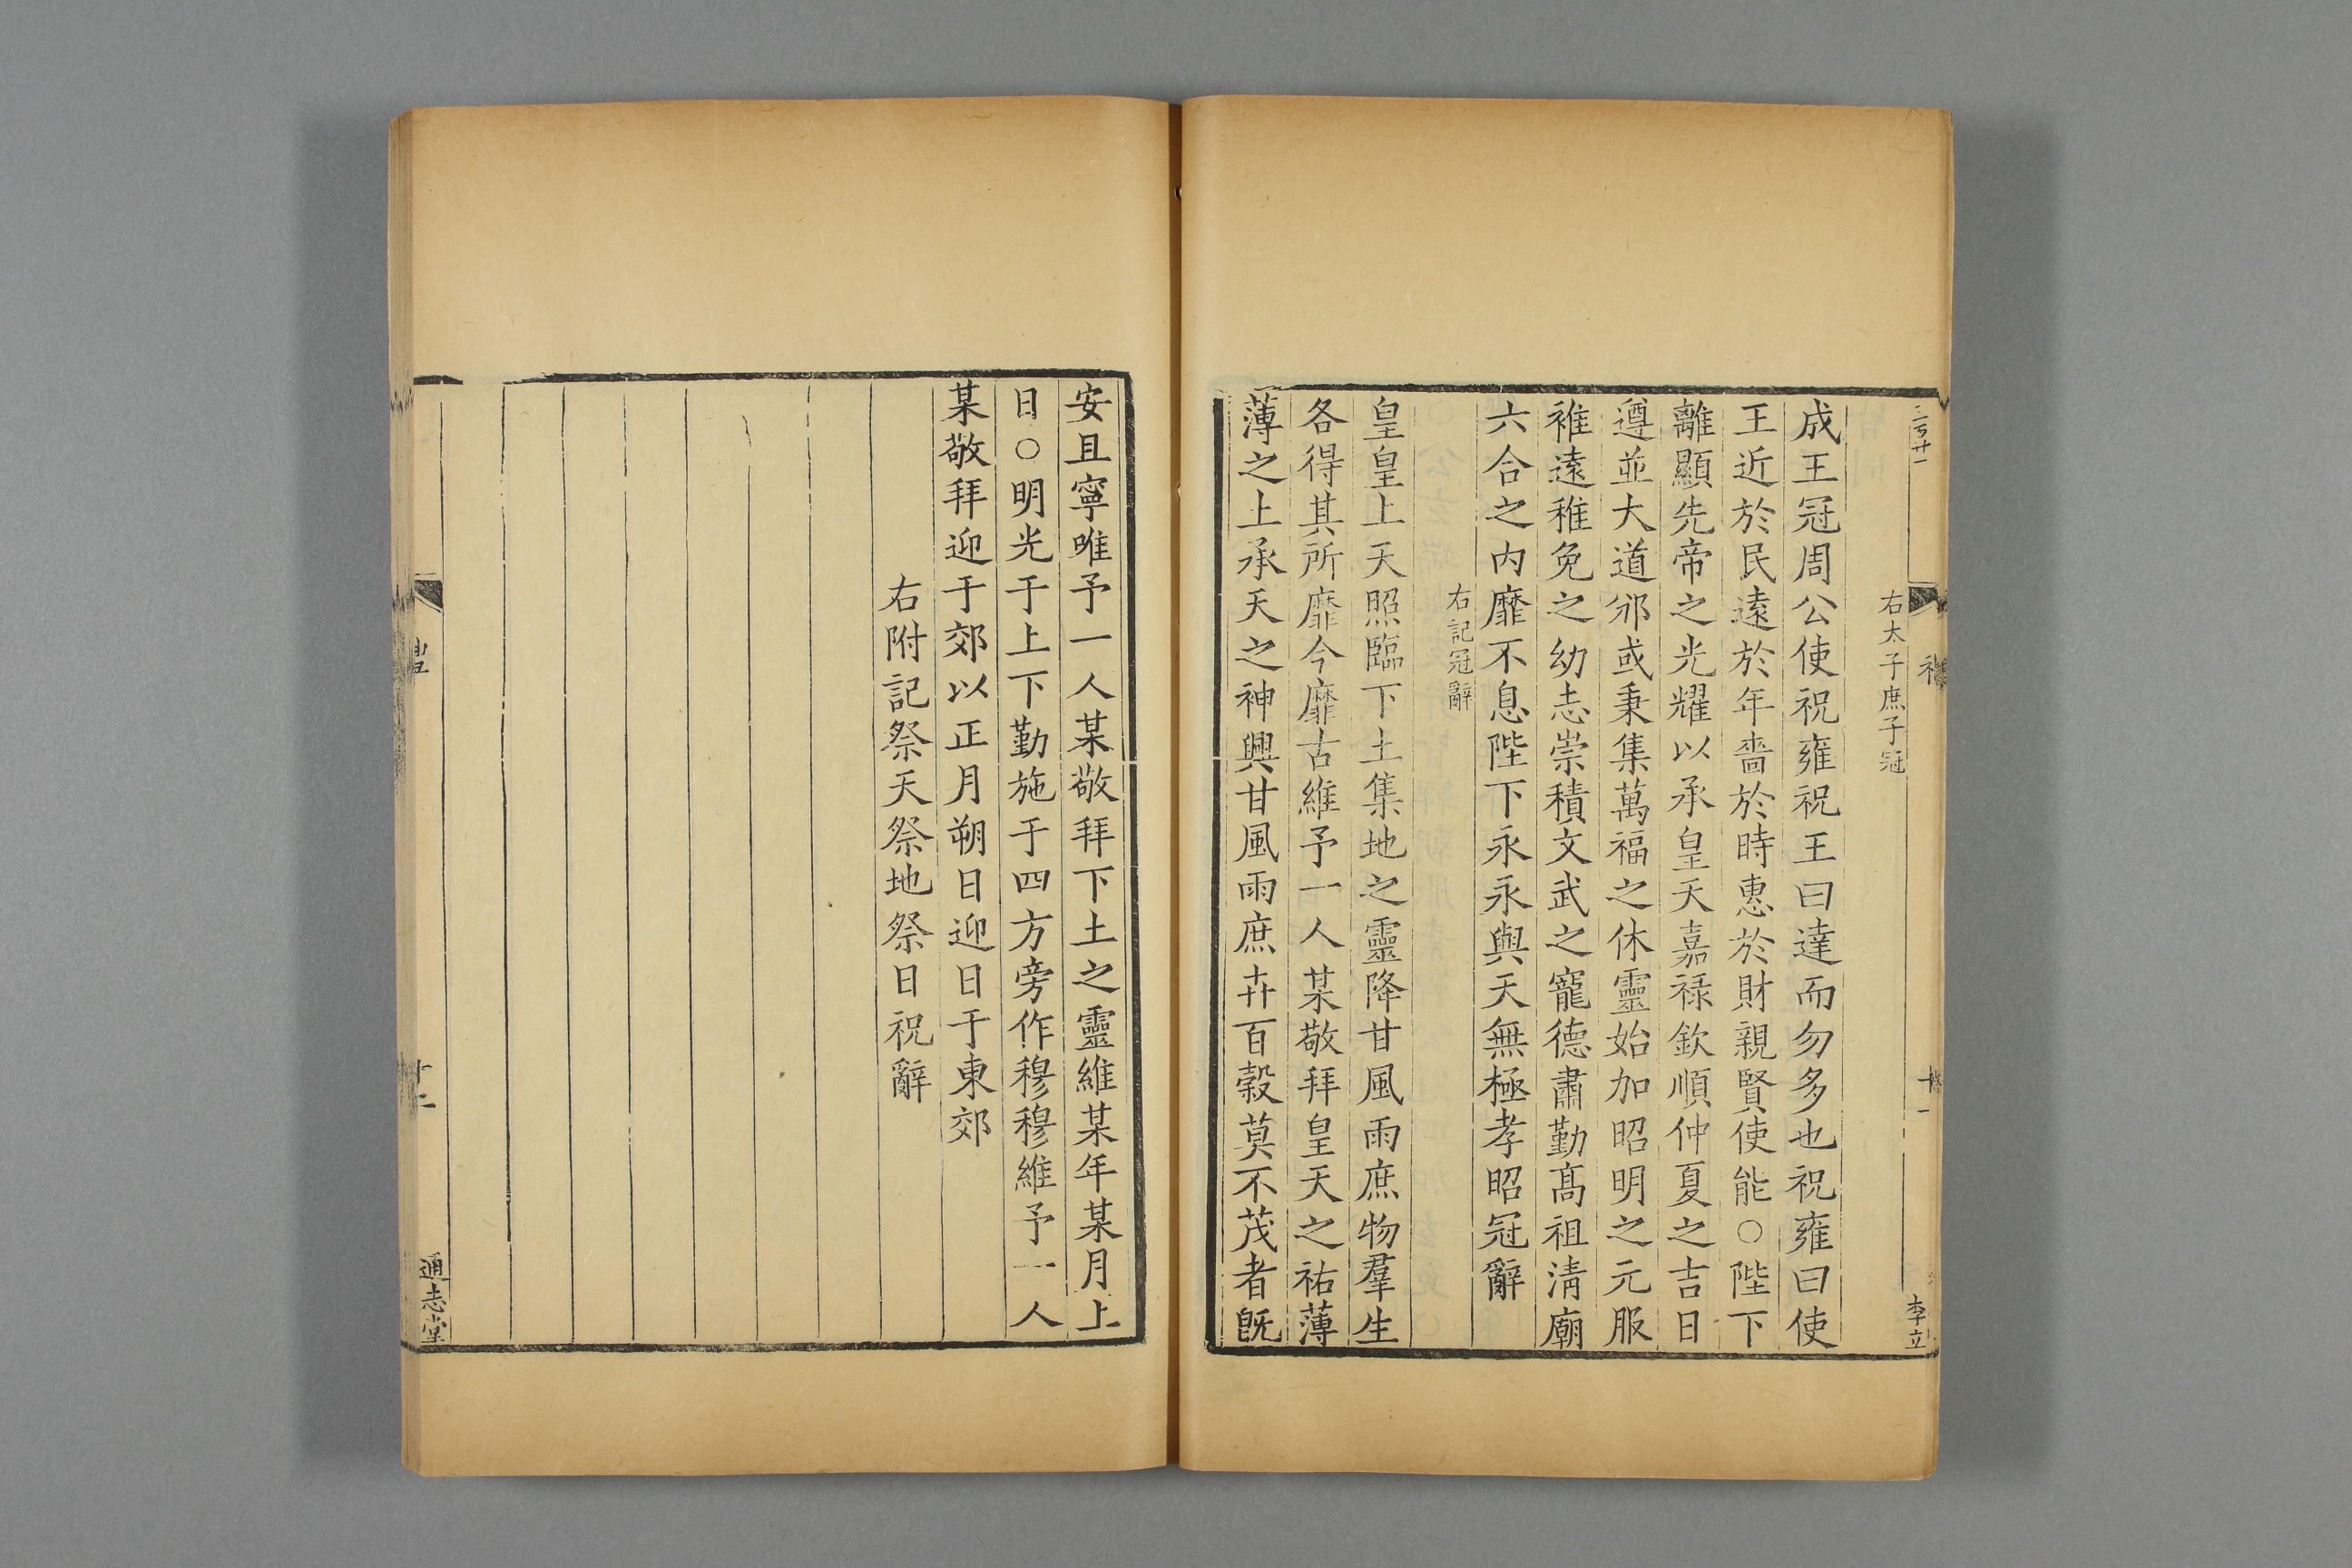 右太子庶子冠
成王冠周公使祝雍祝王曰達而勿多也祝雍曰使
王近於民遠於年嗇於時惠於財親賢使能○陛下
離顯先帝之光耀以承皇天嘉禄欽順仲夏之吉日
遵並大道邠或秉集萬福之休靈始加昭明之元服
推遠稚免之幼志崇積文武之寵德肅勤髙祖清廟
六合之内靡不息陛下永永與天無極孝昭冠辭
右記冠辭
皇皇上天照臨下土集地之靈降甘風雨庶物羣生
各得其所靡今靡古維予一人某敬拜皇天之祐薄
薄之土承天之神興甘風雨庶卉百榖莫不茂者旣
安且寧唯予一人某敬拜下土之靈維某年某月上
日○明光于上下勤施于四方旁作穆穆維予一人
某敬拜迎于郊以正月朔日迎日于東郊
右附記祭天祭地祭日祝辭
十一
李立
十二
通志堂